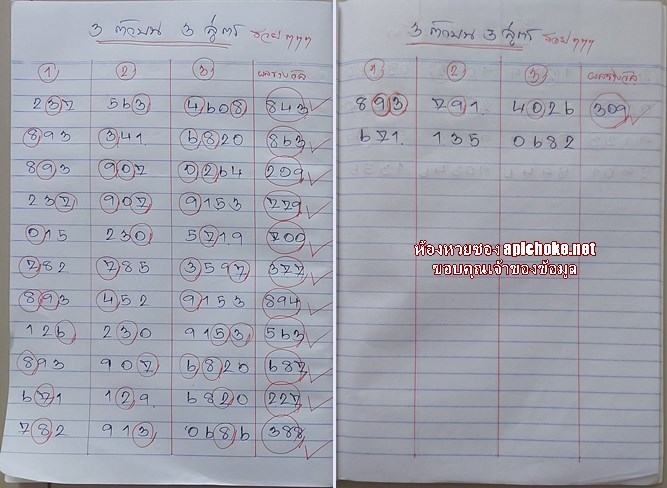 3 ตัวบน 3 สูตร รวยๆๆๆ
1 2 3 ผลรางวัล
237 563 4608 843
893 341 6820 863
893 907 0264 209
237 907 9153 779
015 230 5719 700
782 785 3597 377
893 452 9153 894
126 230 9153 563
893 907 6820 687
671 129 6820 227
782 913 0686 388
3 ตัวบน 3 สูตร รวยๆๆๆ
1 2 3 ผลรางวัล
893 791 4026 309
671 135 0682
ห้องหวยซอง apichoke.net
ขอบคุณเจ้าของข้อมูล